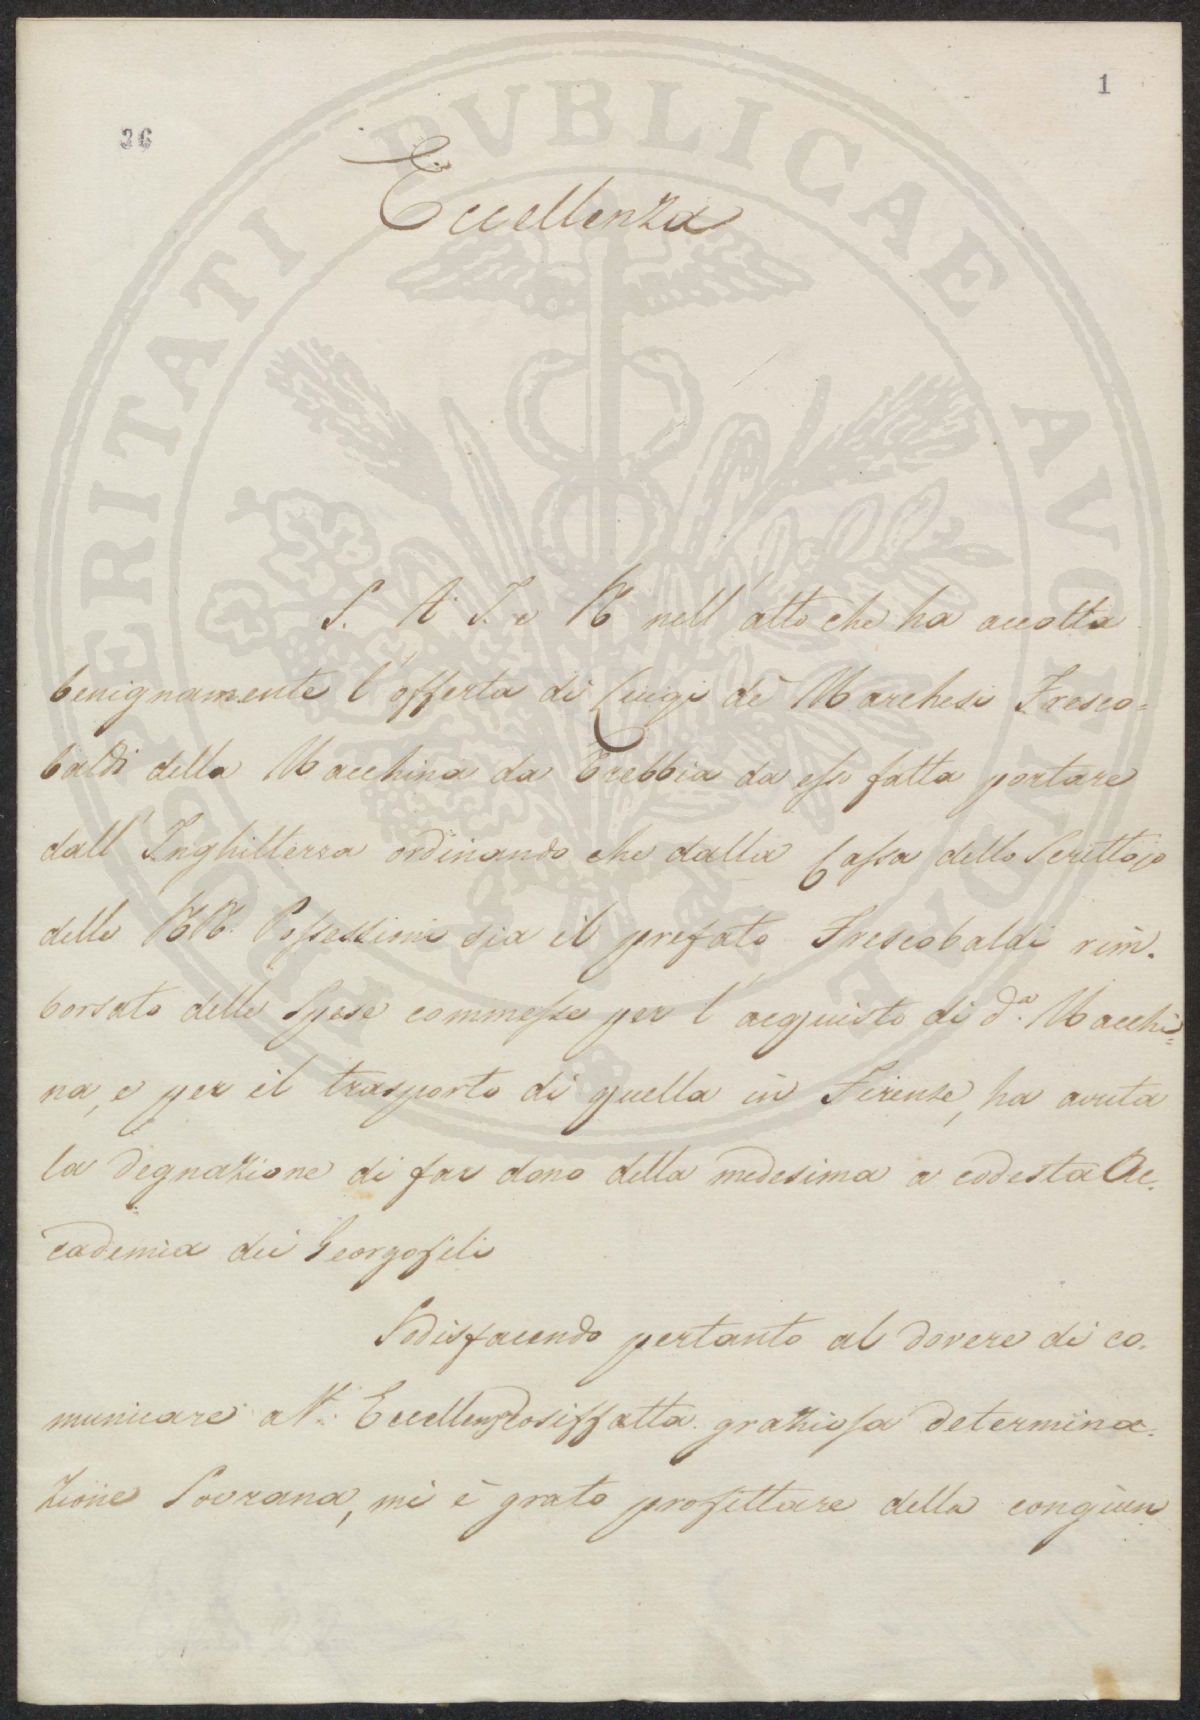 1
36
PROSPERITATI PVBLICAE AVGENDAE
Eccellenza
S. A. I. e R. nell'atto che ha accolta
benignamente l'offerta di Luigi de' Marchesi Fresco=
baldi della Macchina da Trebbia da esso fatta portare
dall'Inghilterra ordinando che dalla Cassa dello Scrittojo
delle RR. Possessioni sia il prefato Frescobaldi rim=
borsato delle spese commesse per l'acquisto di d.a Macchi=
na, e per il trasporto di quella in Firenze, ha avuta
la degnazione di far dono della medesima a codesta Ac=
cademia dei Georgofili
Sodisfacendo pertanto al dovere di co=
municare a V. Eccellenza cosiffatta graziosa determina=
zione Sovrana, mi è grato profittare della congiun